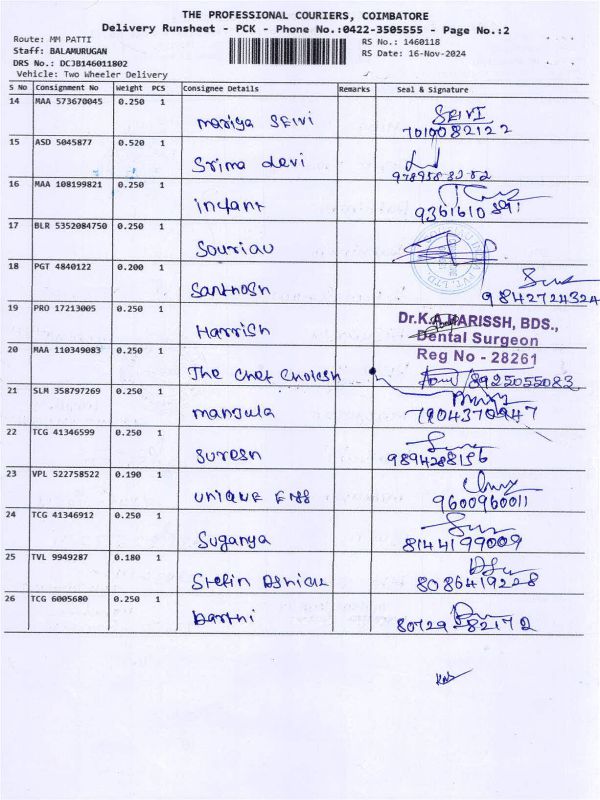 THE PROFESSIONAL COURIERS, COIMBATORE
Delivery Runsheet - PCK - Phone No.:0422-3505555 - Page No.:2
Route: MM PATTI
RS No.: 1460118
Staff: BALAMURUGAN
RS Date: 16-Nov-2024
DRS No.: DCJB146011802
Vehicle: Two Wheeler Delivery
S No Consignment No Weight PCS Consignee Details Remarks Seal & Signature
14 MAA 573670045 0.250 1
Mariya SEIVI SEIVI
7010082122
15 ASD 5045877 0.520 1
Srima devi
16 MAA 108199821 0.250 1
infant
9361610891
17 BLR 5352084750 0.250 1
Souriau
18 PGT 4840122 0.200 1
Santhosh
9842724324
19 PRO 17213005 0.250 1
Harrish
Dr.K.A.HARISSH, BDS.,
Dental Surgeon
Reg No - 28261
20 MAA 110349083 0.250 1
The Chef Choiesh 8925055083
21 SLM 358797269 0.250 1
manjula 7904370947
22 TCG 41346599 0.250 1
Suresh 9894288156
23 VPL 522758522 0.190 1
unique Engg 9600960011
24 TCG 41346912 0.250 1
Suganya 8144199009
25 TVL 9949287 0.180 1
Stefin 8086419228
26 TCG 6005680 0.250 1
Darthi 80729 82172